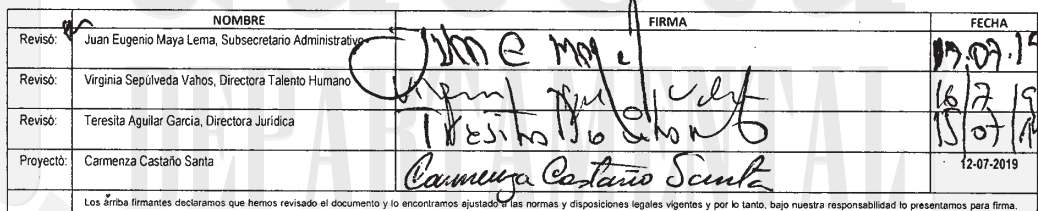 NOMBRE FIRMA FECHA
Revisó: Juan Eugenio Maya Lema, Subsecretario Administrativo 17.07.19
Revisó: Virginia Sepúlveda Vahos, Directora Talento Humano 16/7/19
Revisó: Teresita Aguilar García, Directora Jurídica 15/07/19
Proyectó: Carmenza Castaño Santa Carmenza Castaño Santa 12-07-2019
Los arriba firmantes declaramos que hemos revisado el documento y lo encontramos ajustado a las normas y disposiciones legales vigentes y por lo tanto, bajo nuestra responsabilidad lo presentamos para firma.